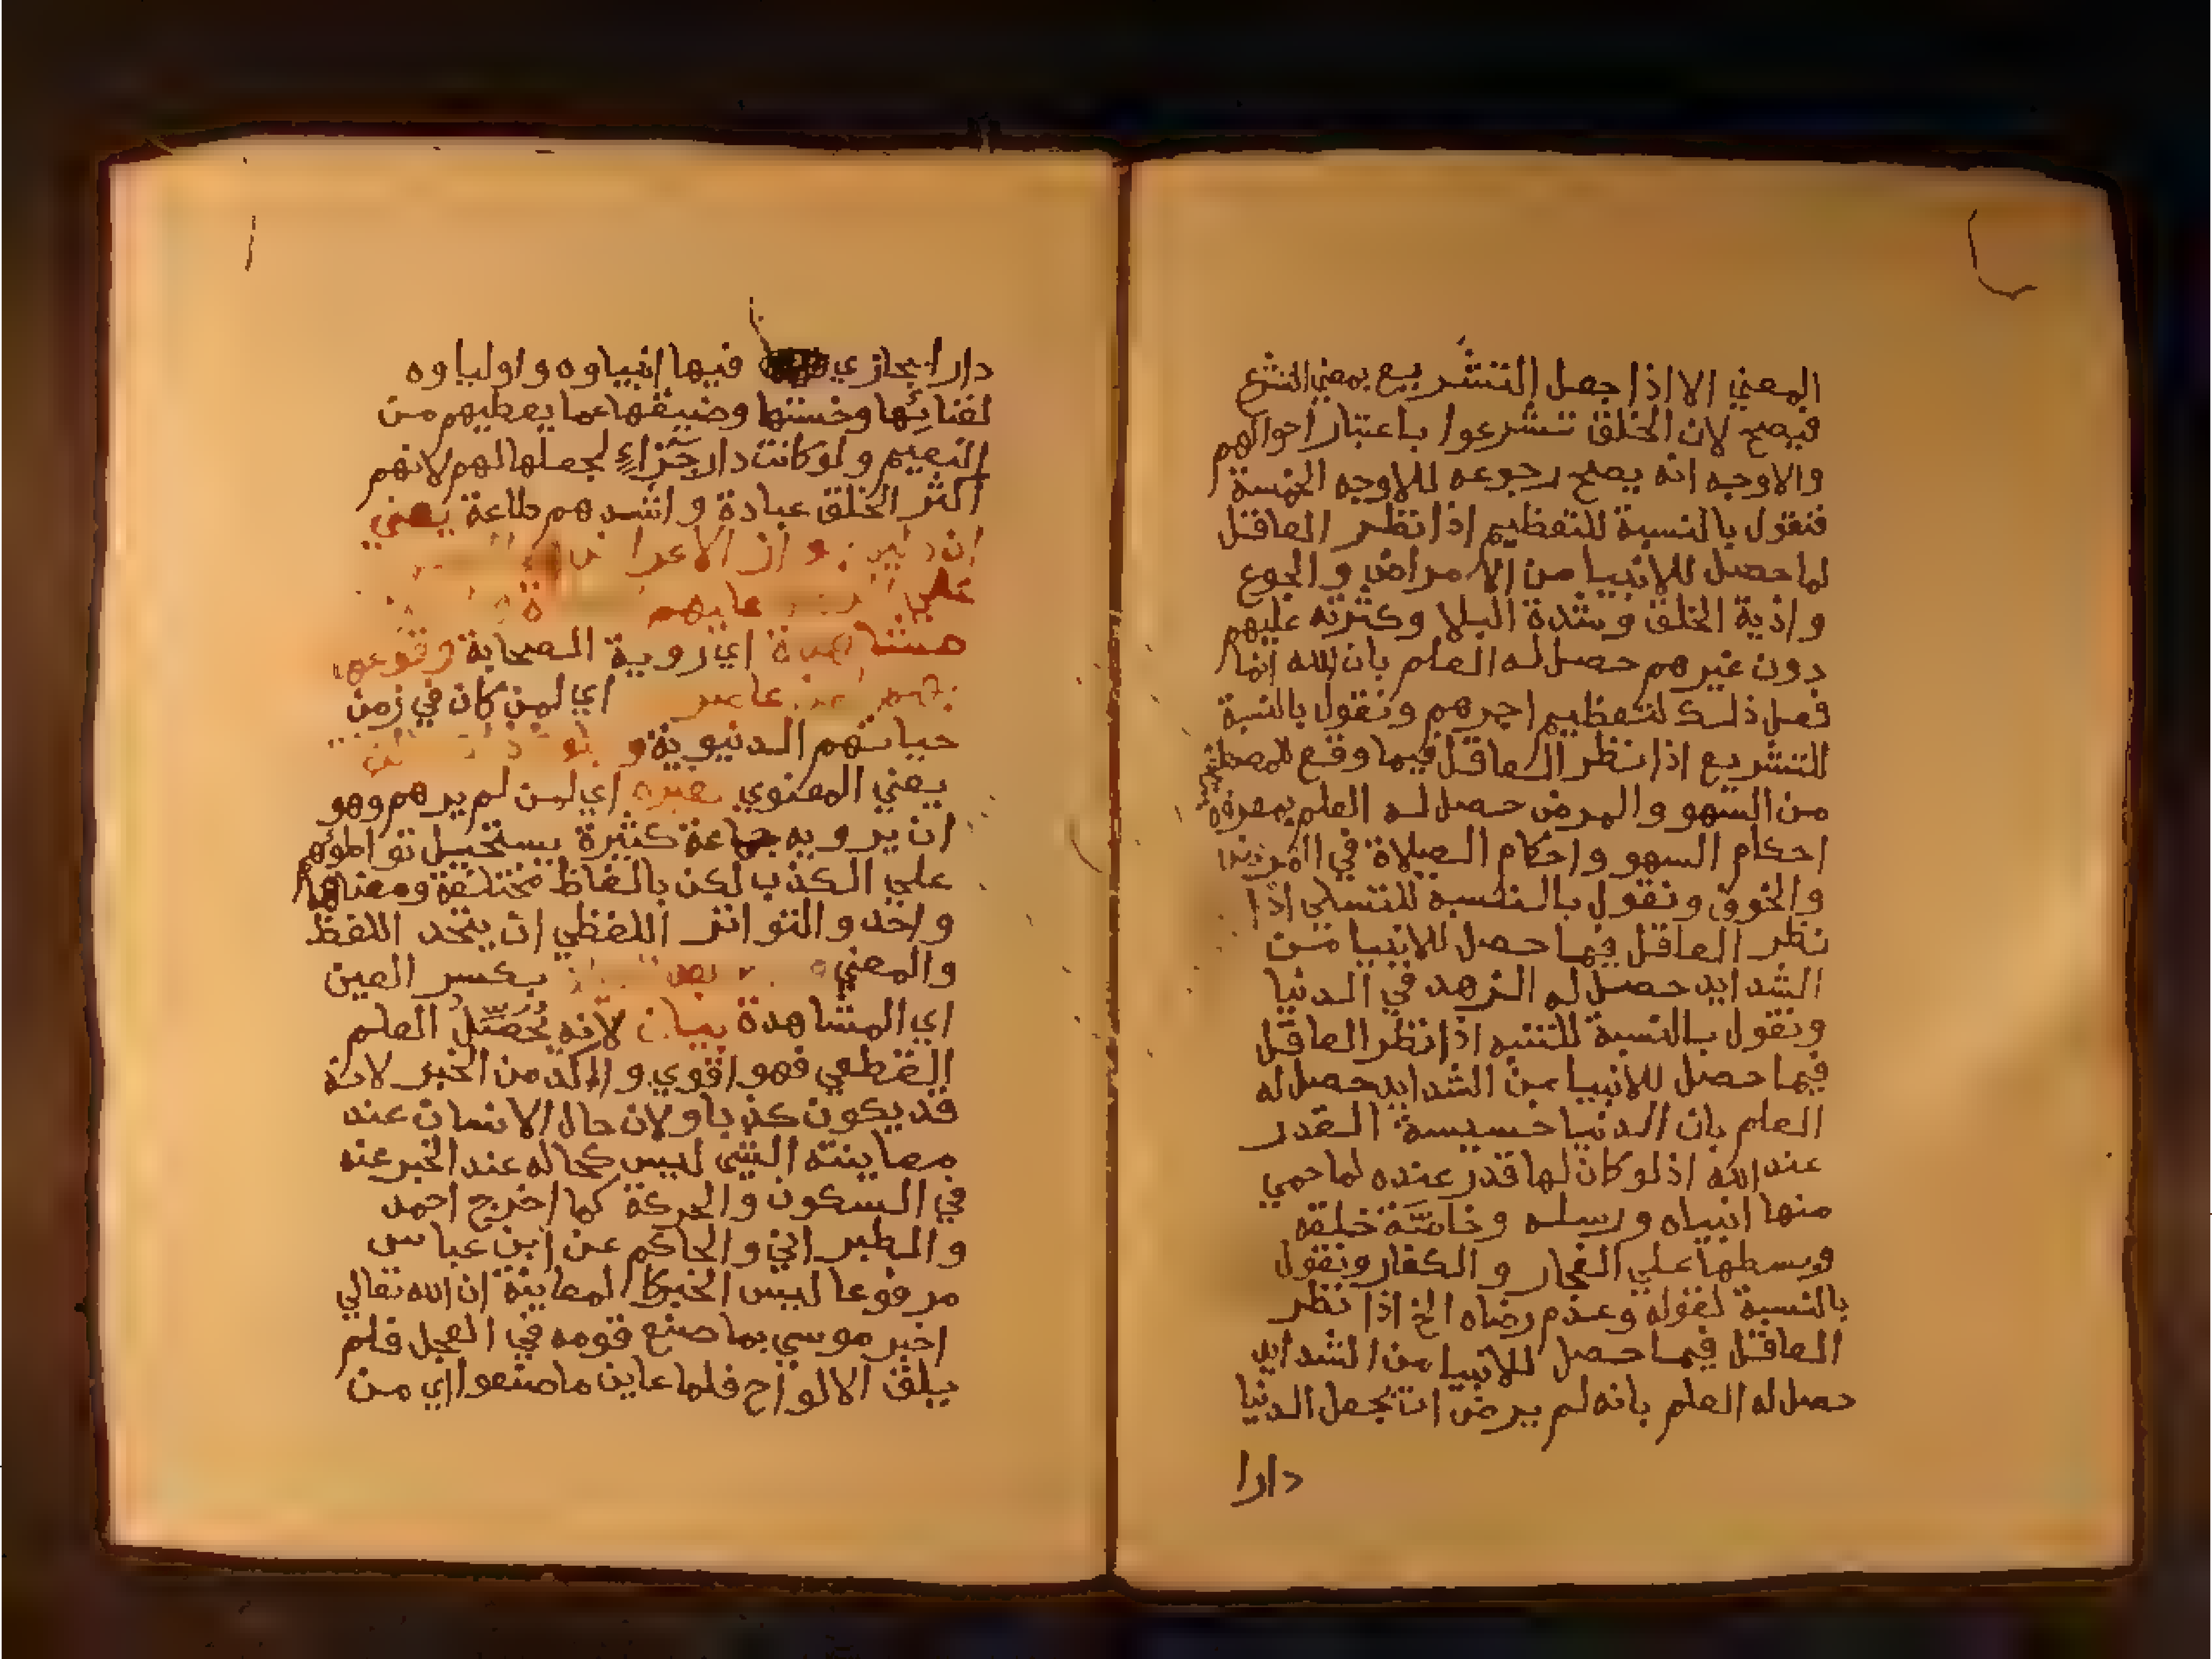 المعني الا اذا جعل التشريع بمعني التشرع
فيصح لان الخلق تشرعوا باعتبار احوالهم
والاوجه انه يصح رجوعه للاوجه الخمسة
فنقول بالنسبة للتعظيم اذا نظر العاقل
لما حصل للانبيا من الامراض والجوع
واذية الخلق وشدة البلا وكثرته عليهم
دون غيرهم حصل له العلم بان الله انما
فعل ذلك لتعظيم اجرهم ونقول بالنسبة
للتشريع اذا نظر العاقل فيما وقع للمصطفي
من السهو والمرض حصل له العلم بمعرفة
احكام السهو واحكام الصلاة في المرض
والخوف ونقول بالنسبة للتسلي اذا
نظر العاقل فيما حصل للانبيا من
الشدايد حصل له الزهد في الدنيا
ونقول بالنسبة للتنبه اذا نظر العاقل
فيما حصل للانبيا من الشدايد حصل له
العلم بان الدنيا خسيسة القدر
عند الله اذ لو كان لها قدر عنده لما حمي
منها انبياه ورسله وخاصَّة خلقه
وبسطها علي الفجار والكفار ونقول
بالنسبة لقوله وعدم رضاه الخ اذا نظر
العاقل فيما حصل للانبيا من الشدايد
حصل له العلم بانه لم يرض ان تجعل الدنيا
دارا
دارا يجازي فيها انبياوه واولياوه
لفنائها وخستها وضيقها عما يعطيهم من
النعيم ولو كانت دار جَزَاءٍ لجعلها لهم لانهم
اكثر الخلق عبادة واشدهم طاعة يعني
ان دليل الاعراض
علي عليهم
مشاهدة اي روية الصحابة وقوعها
بهم لمن عاصر اي لمن كان في زمن
حياتهم الدنيوية و
يعني المعنوي لغيره اي لمن لم يرهم وهو
ان يرويه جماعة كثيرة يستحيل تواطؤهم
علي الكذب لكن بالفاظ مختلفة ومعناها
واحد والتواتر اللفظي ان يتحد اللفظ
والمعني بكسر العين
اي المشاهدة بيان لانه يُحَصِّلُ العلم
القطعي فهو اقوي واكد من الخبر لانه
قد يكون كذبا ولان حال الانسان عند
معاينته الشي ليس كحاله عند الخبر عنه
في السكون والحركة كما اخرج احمد
والطبراني والحاكم عن ابن عباس
مرفوعا ليس الخبر كالمعاينة ان الله تعالي
اخبر موسي بما صنع قومه في العجل فلم
يلق الالواح فلما عاين ما صنعوا اي من